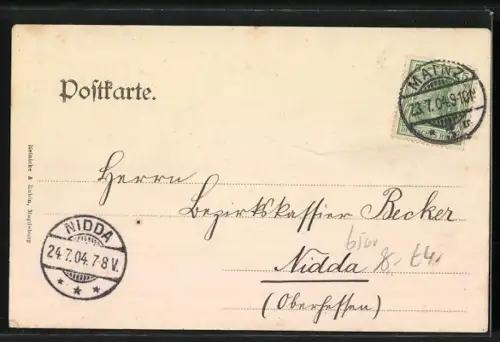 Postkarte.
MAINZ
23.7.04.9-10N.
Herrn
Bezirkskassier Becker
Nidda
(Oberhessen)
NIDDA
24.7.04.7-8V.
Reinicke & Rubin, Magdeburg